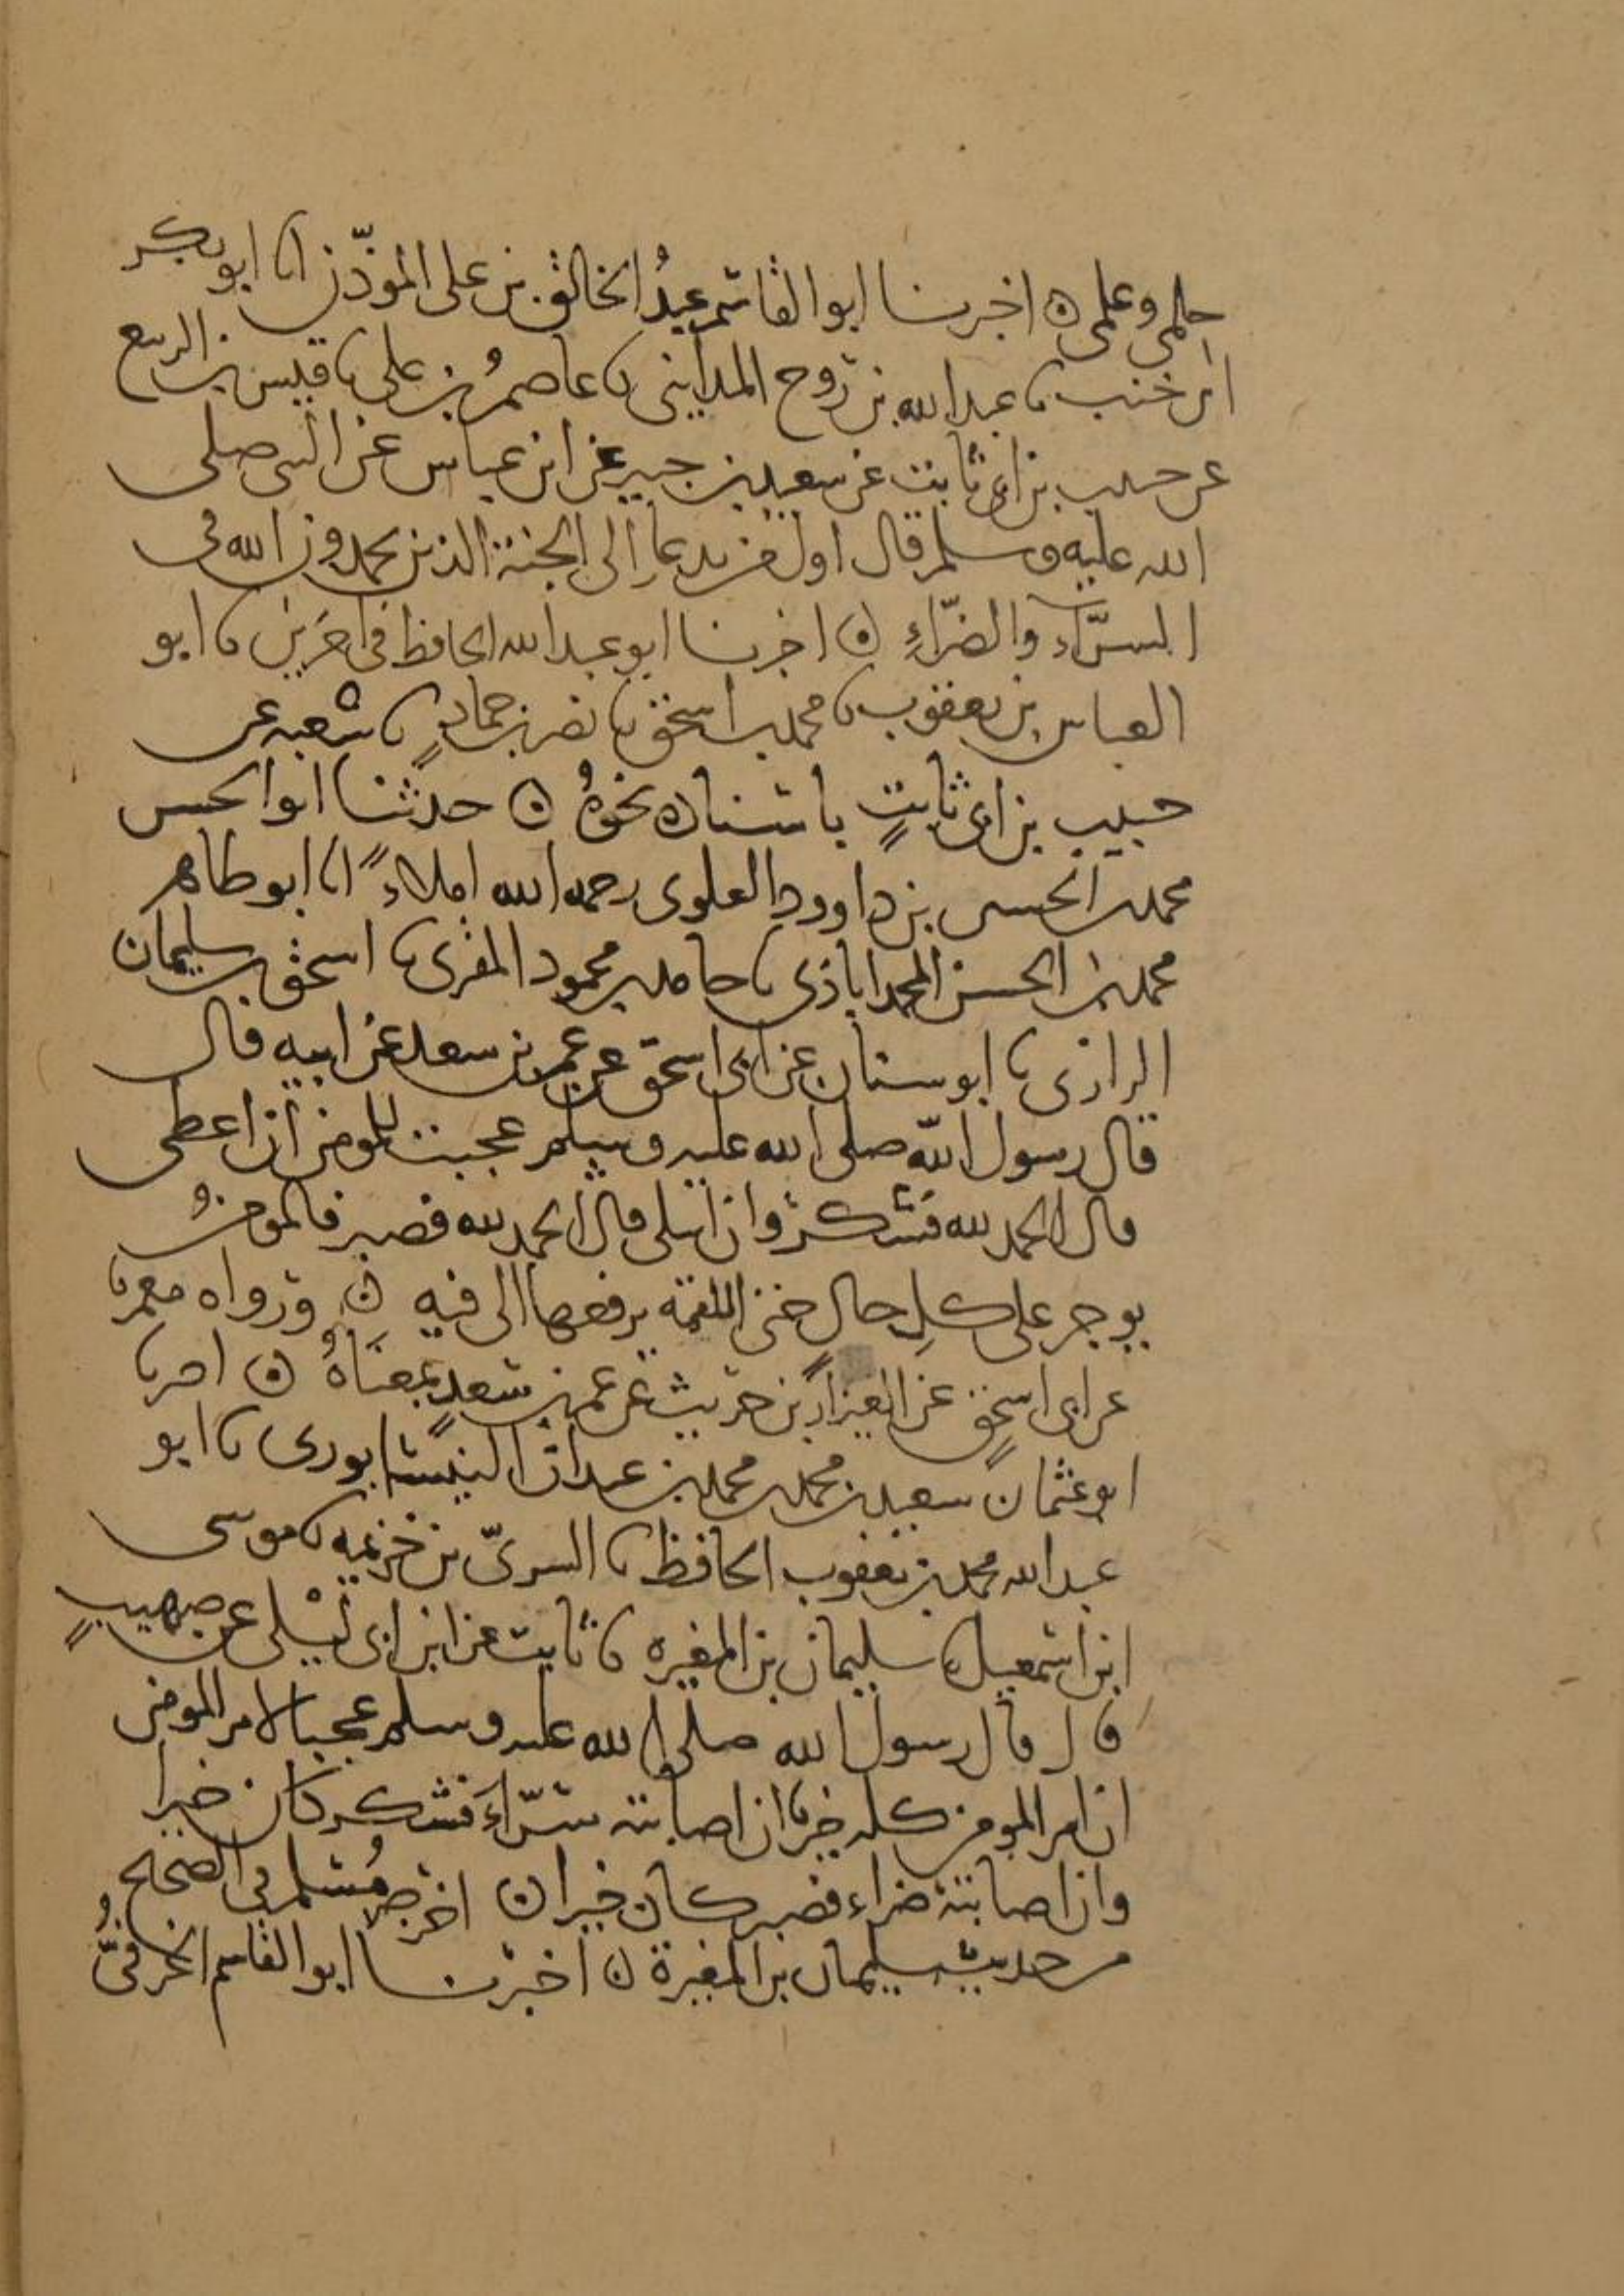 حلمي وعلمي ن اخبرنا ابو القاسم عبدُ الخالق بن على الموذّن انا ابو بكر
ابن خنب نا عبد الله بن روح المدايني نا عاصمُ بن على نا قيس بن الربيع
عن حبيب بن ابي ثابت عن سعيد بن جبير عن ابن عباس عن النبي صلى
الله عليه وسلم قال اول من يدعا إلى الجنة الذين يحمدون الله في
السرّاء والضرّاءِ ن اخبرنا ابو عبد الله الحافظ في اخرين نا ابو
العباس بن يعقوب نا محمد بن اسحق نا نصر بن حمادٍ نا شعبه عن
حبيب بن ابي ثابتٍ باسناده نحوهُ ن حدثنا ابو الحسن
محمد بن الحسين بن داوود العلوى رحمه الله املاءً انا ابو طاهر
محمد بن الحسن المحمداباذى نا حامد بن محمود المقرى نا اسحق بن سليمان
الرازى نا ابو سنان عن ابي اسحق عن عمر بن سعد عن ابيه قال
قال رسول الله صلى الله عليه وسلم عجبت للمومن ان اعطى
قال الحمد لله فشكر وان ابتلى قال الحمد لله فصبر فالمومنُ
يوجر على كلِ حال حتى اللقمة يرفعها الى فيه ن ورواه معمر
عن ابي اسحق عن العيزار بن حريث عن عمر بن سعدٍ بمعناهُ ن اخبرنا
ابو عثمان سعيد بن محمد بن محمد بن عبدان النيسابورى نا ابو
عبد الله محمد بن يعقوب الحافظ نا السرىّ بن خزيمه نا موسى
ابن اسمعيل نا سليمان بن المغيره نا ثابت عن ابن ابي ليْلى عن صهيبٍ
قال قال رسول الله صلى الله عليه وسلم عجبا لامر المومن
ان امر المومن كله خير ان اصابته سرّاءَ فشكر كان خيرا
وان اصابته ضراء فصبر كان خيرا ن اخرجه مُسلم في الصحيح
من حديث سليمان بن المغيرة ن اخبرنا ابو القاسم الحرفيُّ